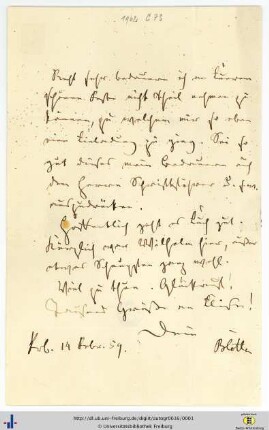 Recht sehr bedauern ich an Eurem
schönen Feste nicht Theil nehmen zu
können, zu welchem mir so eben
eine Einladung zu ging. Sei so
gut dieses mein Bedauern auch
den Herren Schriftführer
auszudrücken.
Hoffentlich geht es Euch gut.
Kürzlich war Wilhelm hier,
etwas ganz wohl.
Viel zu thun. Glückauf!
Tausend Grüße an
Dein
14 Febr. 59.
http://dl.ub.uni-freiburg.de/diglit/autogr0016/0001
© Universitätsbibliothek Freiburg